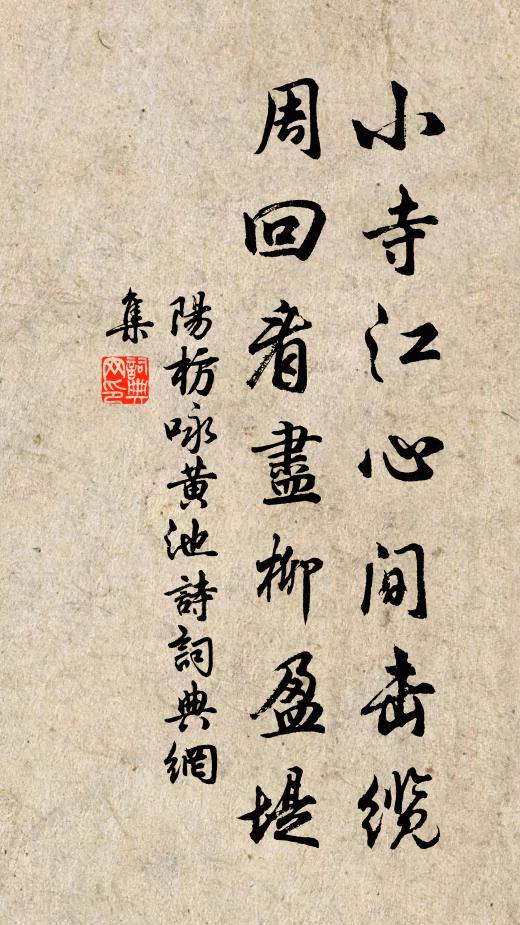 小寺江心间击缆
周回看盡柳盈堤
陽枋咏黄池詩詞典網
集
詞典网印